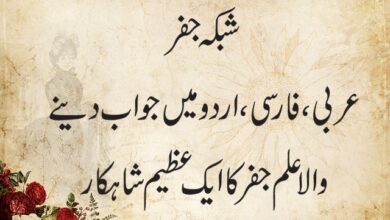 شبکہ جفر
عربی، فارسی، اردو میں جواب دینے
والا علم جفر کا ایک عظیم شاہکار